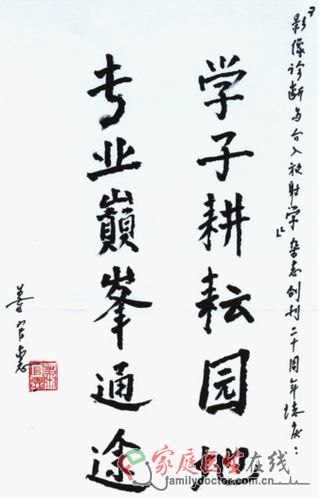 『影像诊断与介入放射学』杂志创刊二十周年庆：
学子耕耘园地
专业巔峯通途
家庭医生在线
familydoctor.com.cn